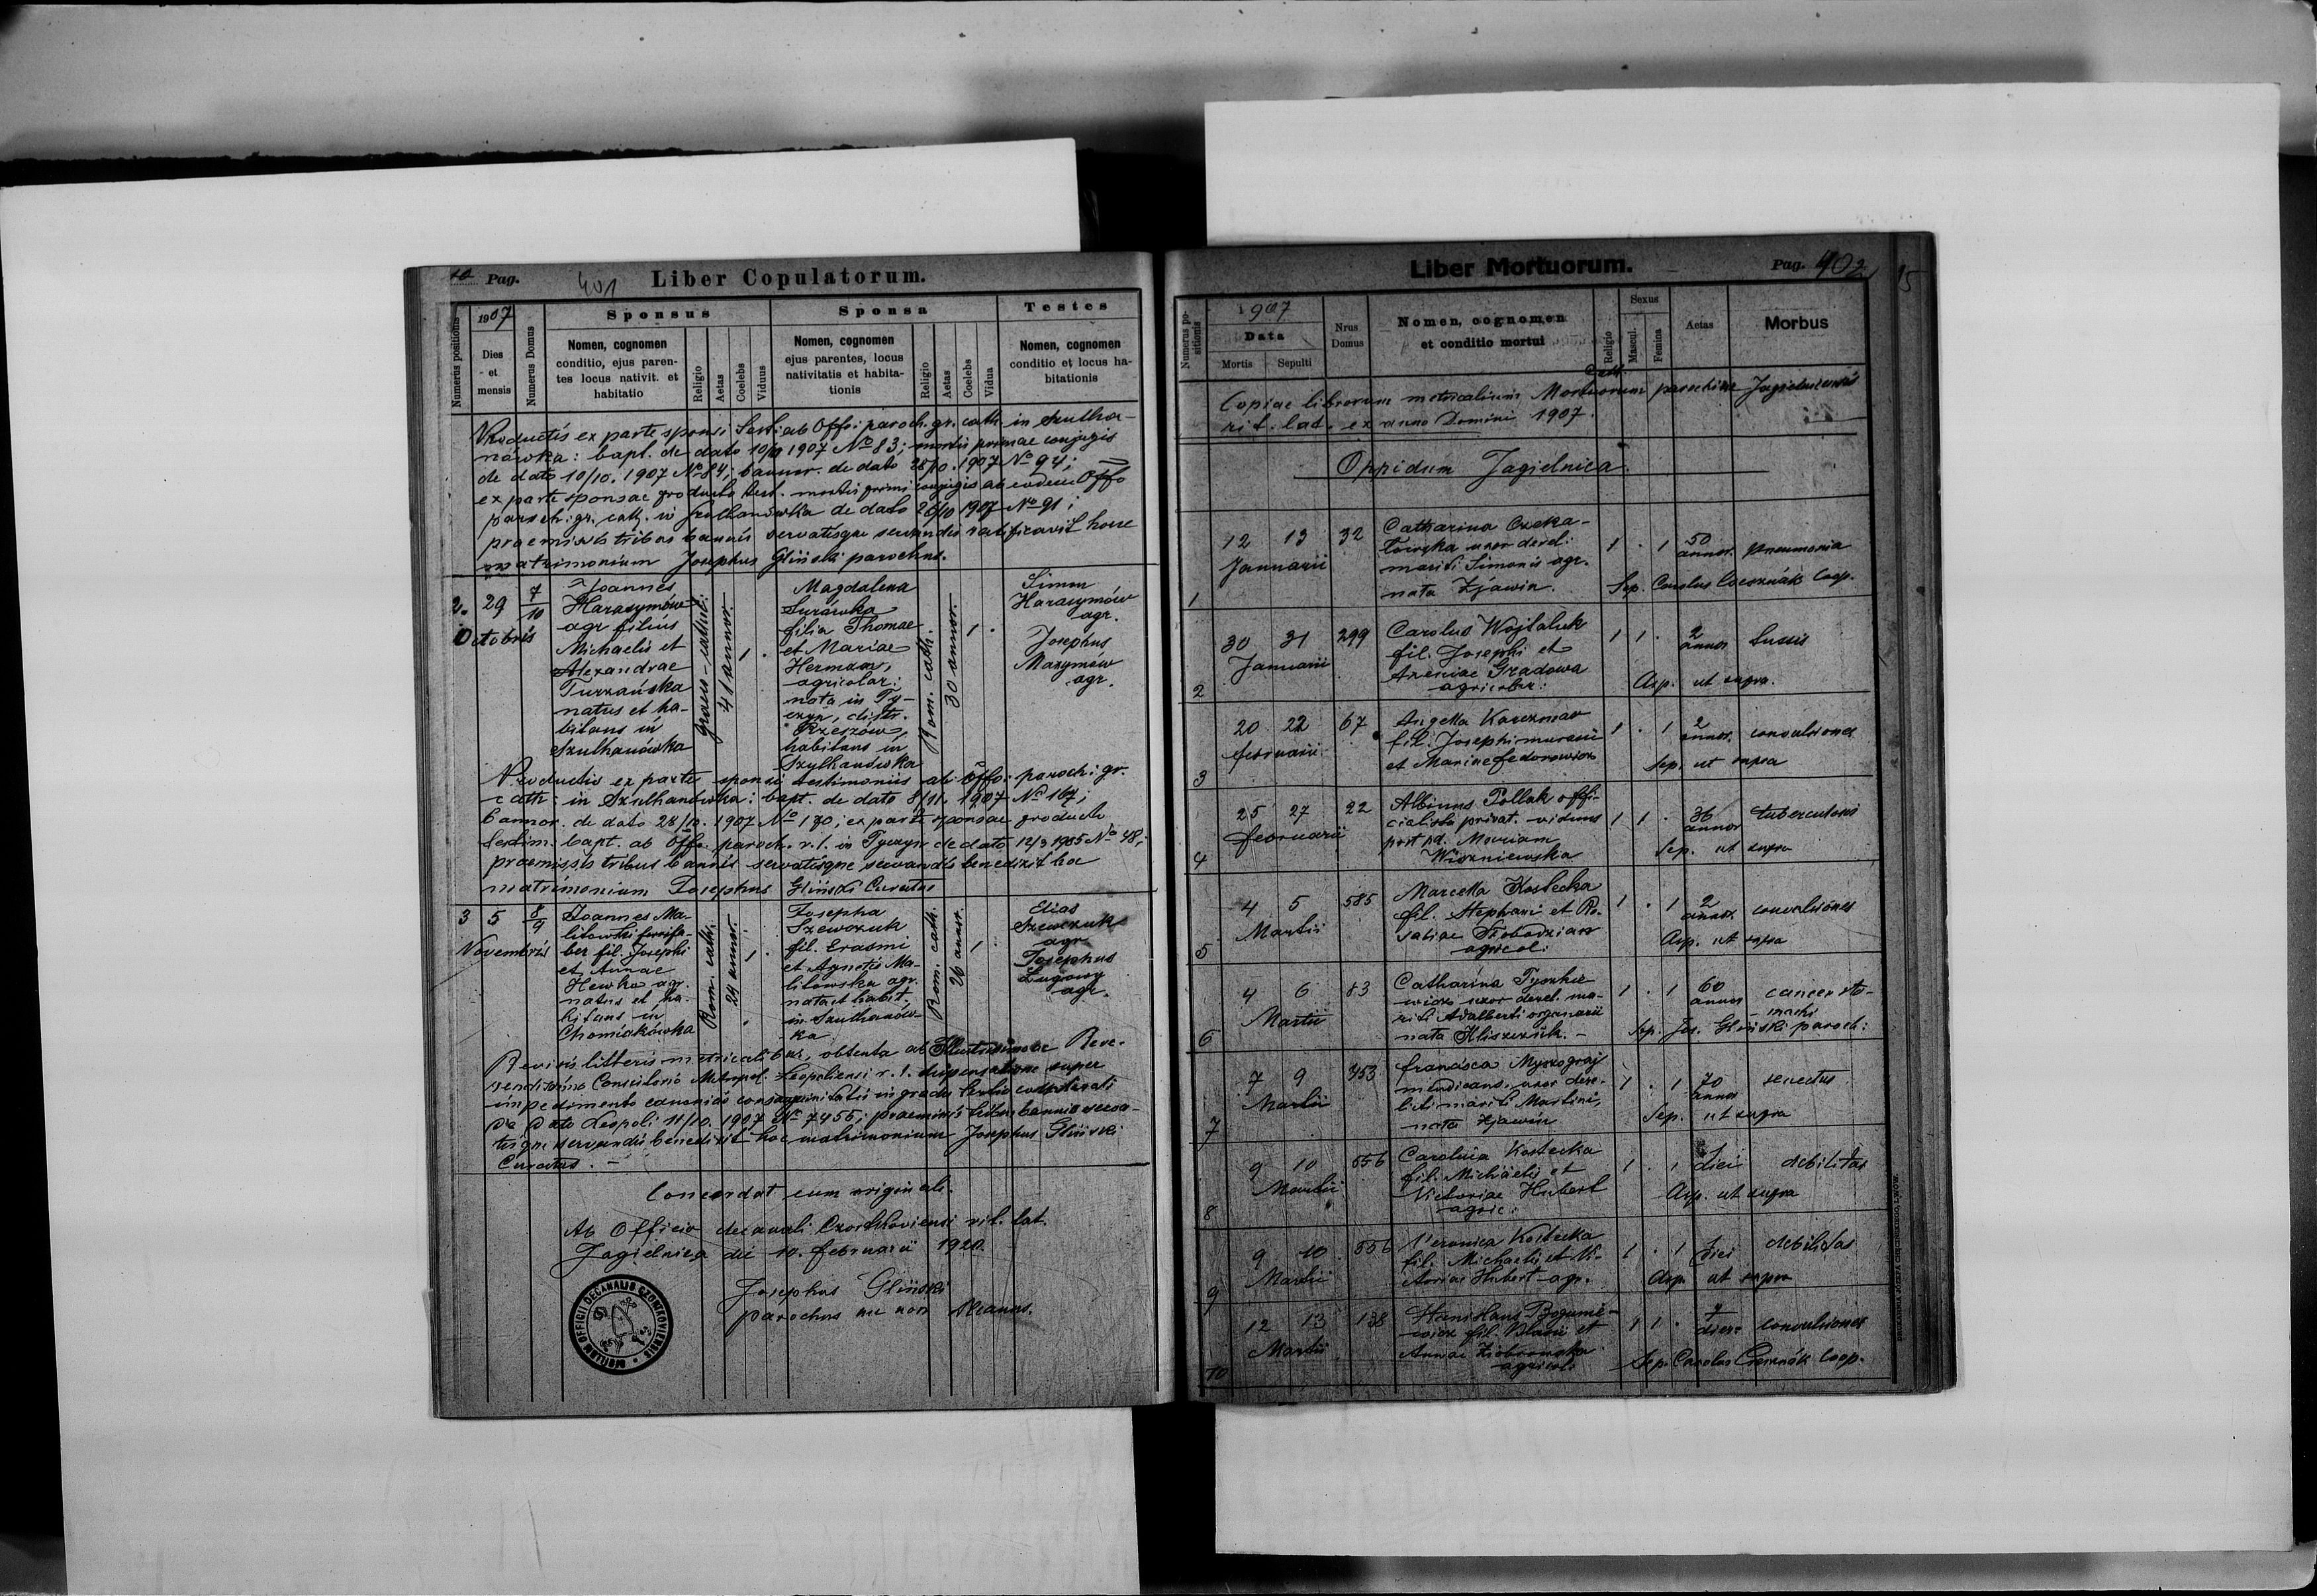 10 Pag. 401 Liber Copulatorum.
Numerus positionis
1907
Dies
et
mensis
Numerus Domus
Sponsus
Nomen, cognomen
conditio, ejus paren-
tes locus nativit. et
habitatio
Religio
Aetas
Coelebs
Viduus
Sponsa
Nomen, cognomen
ejus parentes, locus
nativitatis et habita-
tionis
Religio
Aetas
Coelebs
Vidua
Testes
Nomen, cognomen
conditio et locus ha-
bitationis
Productis ex parte sponsi testi ab Offo: paroch. gr. cath. in Szulha-
nówka: bapt. de dato 10/10 1907 No 83; mortis primae conjugis
de dato 10/10. 1907 No 84; bannor. de dato 28/10. 1907 No 94;
ex parte sponsae producto test. mortis primi conjugis ab eodem Offo
paroch: gr. cath. in Szulhanówka de dato 28/10 1907 No 91;
praemissis tribus bannis servatisque servandis ratificavit hocce
matrimonium Josephus Gliński parochus.
2. 29 7/10
Octobris
Joannes
Harasymów
agr filius
Michaelis et
Alexandrae
Turzańska
natus et ha-
bitans in
Szulhanówka
graeco-cathol:
41 annor.
1 .
Magdalena
Surówka
filia Thomae
et Mariae
Herman,
agricolar:
nata in Ty-
czyn, distr.
Rzeszów,
habitans in
Szulhanówka
Rom. cath.
30 annor.
1 .
Simon
Harasymów
agr.
Josephus
Marymów
agr.
Productis ex parte sponsi testimoniis ab Offo: paroch: gr.
cath: in Szulhanówka: bapt. de dato 8/11. 1907 No 167;
bannor. de dato 28/10. 1907 No 170; ex parte sponsae producto
testim. bapt. ab Offo. paroch. r. l. in Tyczyn de dato 12/3 1905 No 48;
praemissis tribus bannis servatisque servandis benedixit hoc
matrimonium Josephus Gliński Curatus
3 5 8/9
Novembris
Joannes Ma-
litowski
ber fil. Josephi
et Annae
Hewko agr.
natus et ha-
bitans in
Chomiakówka
Rom. cath.
29 annor.
1 .
Josepha
Szewczuk
fil. Erasmi
et Agnetis Ma-
litowska agr.
nata et habit.
in Szulhanów-
ka
Rom. cath.
26 annor.
1 .
Elias
Szewczuk
agr.
Josephus
Lugowy
agr.
Revisis litteris metricalibus, obtenta ab Illustrissimo ac Reve-
rendissimo Consistorio Metropol. Leopoliensi r. l. dispensatione super
impedimento canonico consanguinitatis in gradu
de dato Leopoli 11/10. 1907 No 7455; praemissis tribus bannis serva-
tisque servandis benedixit hoc matrimonium Josephus Gliński
Curatus. —
Concordat cum originali.
Ab Officio decanali Czortkoviensi rit. lat.
Jagielnica die 10. februarii 1920.
Josephus Gliński
parochus nec non decanus.
SIGILLUM OFFICII DECANALIS CZORTKOVIENSIS
Liber Mortuorum. Pag. 402
15
Numerus po-
sitionis
1907
Data
Mortis Sepulti
Nrus
Domus
Nomen, cognomen
et conditio mortui
Religio
Sexus
Mascul.
Femina
Aetas
Morbus
Copiae librorum metricalium Mortuorum parochiae Jagielnicensis
rit. lat. ex anno Domini 1907.
Oppidum Jagielnica.
1 12 13 Januarii 32
Catharina Czeka-
łowska uxor derel:
mariti Simonis agr.
nata Zjawin.
1 . 1 50 annor. pneumonia
Sep. Carolus Coop.
2 30 31 Januarii 299
Carolus Wojtaluk
fil. Josephi et
Gradowa
agricolar:
1 1 . 2 annor. tussis
Asp. ut supra.
3 20 22 februarii 67
Angella Karczmar
fil. Josephi murarii
et Mariae Fedorowicz
1 . 1 2 annor. convulsiones
Sep. ut supra
4 25 27 februarii 22
Albinus Pollak offi-
cialista privat. viduus
post pd. Mariam
Wiszniewska
1 1 . 36 annor tuberculosis
Sep. ut supra
5 4 5 Martii 585
Marcella Kostecka
fil. Stephani et Ro-
saliae Słobodzian
agricol:
1 . 1 2 annor. convulsiones
Asp. ut supra
6 4 6 Martii 83
Catharina Tyszkie-
wicz uxor derel. ma-
riti Adalberti organarii
nata Kliszczuk. -
1 . 1 60 annor cancer sto-
machi
Sep. Jos. Gliński paroch:
7 7 9 Martii 353
Francisca Myszograj
mendicans. uxor dere-
licti mariti Martini,
nata Zjawin
1 . 1 70 annor senectus
Sep. ut supra
8 9 10 Martii 556
Carolina Kostecka
fil. Michaelis et
Victoriae Hubert
agric:
1 . 1 1 diei debilitas
Asp. ut supra
9 9 10 Martii 556
Veronica Kostecka
fil. Michaelis et Vi-
ctoriae Hubert agr.
1 . 1 1 diei debilitas
Asp. ut supra
10 12 13 Martii 138
Stanislaus Bogunie-
wicz fil. Blasii et
Annae Ziobrowska
agricol:
1 1 . 9 dier. convulsiones
Sep. Carolus Coop.